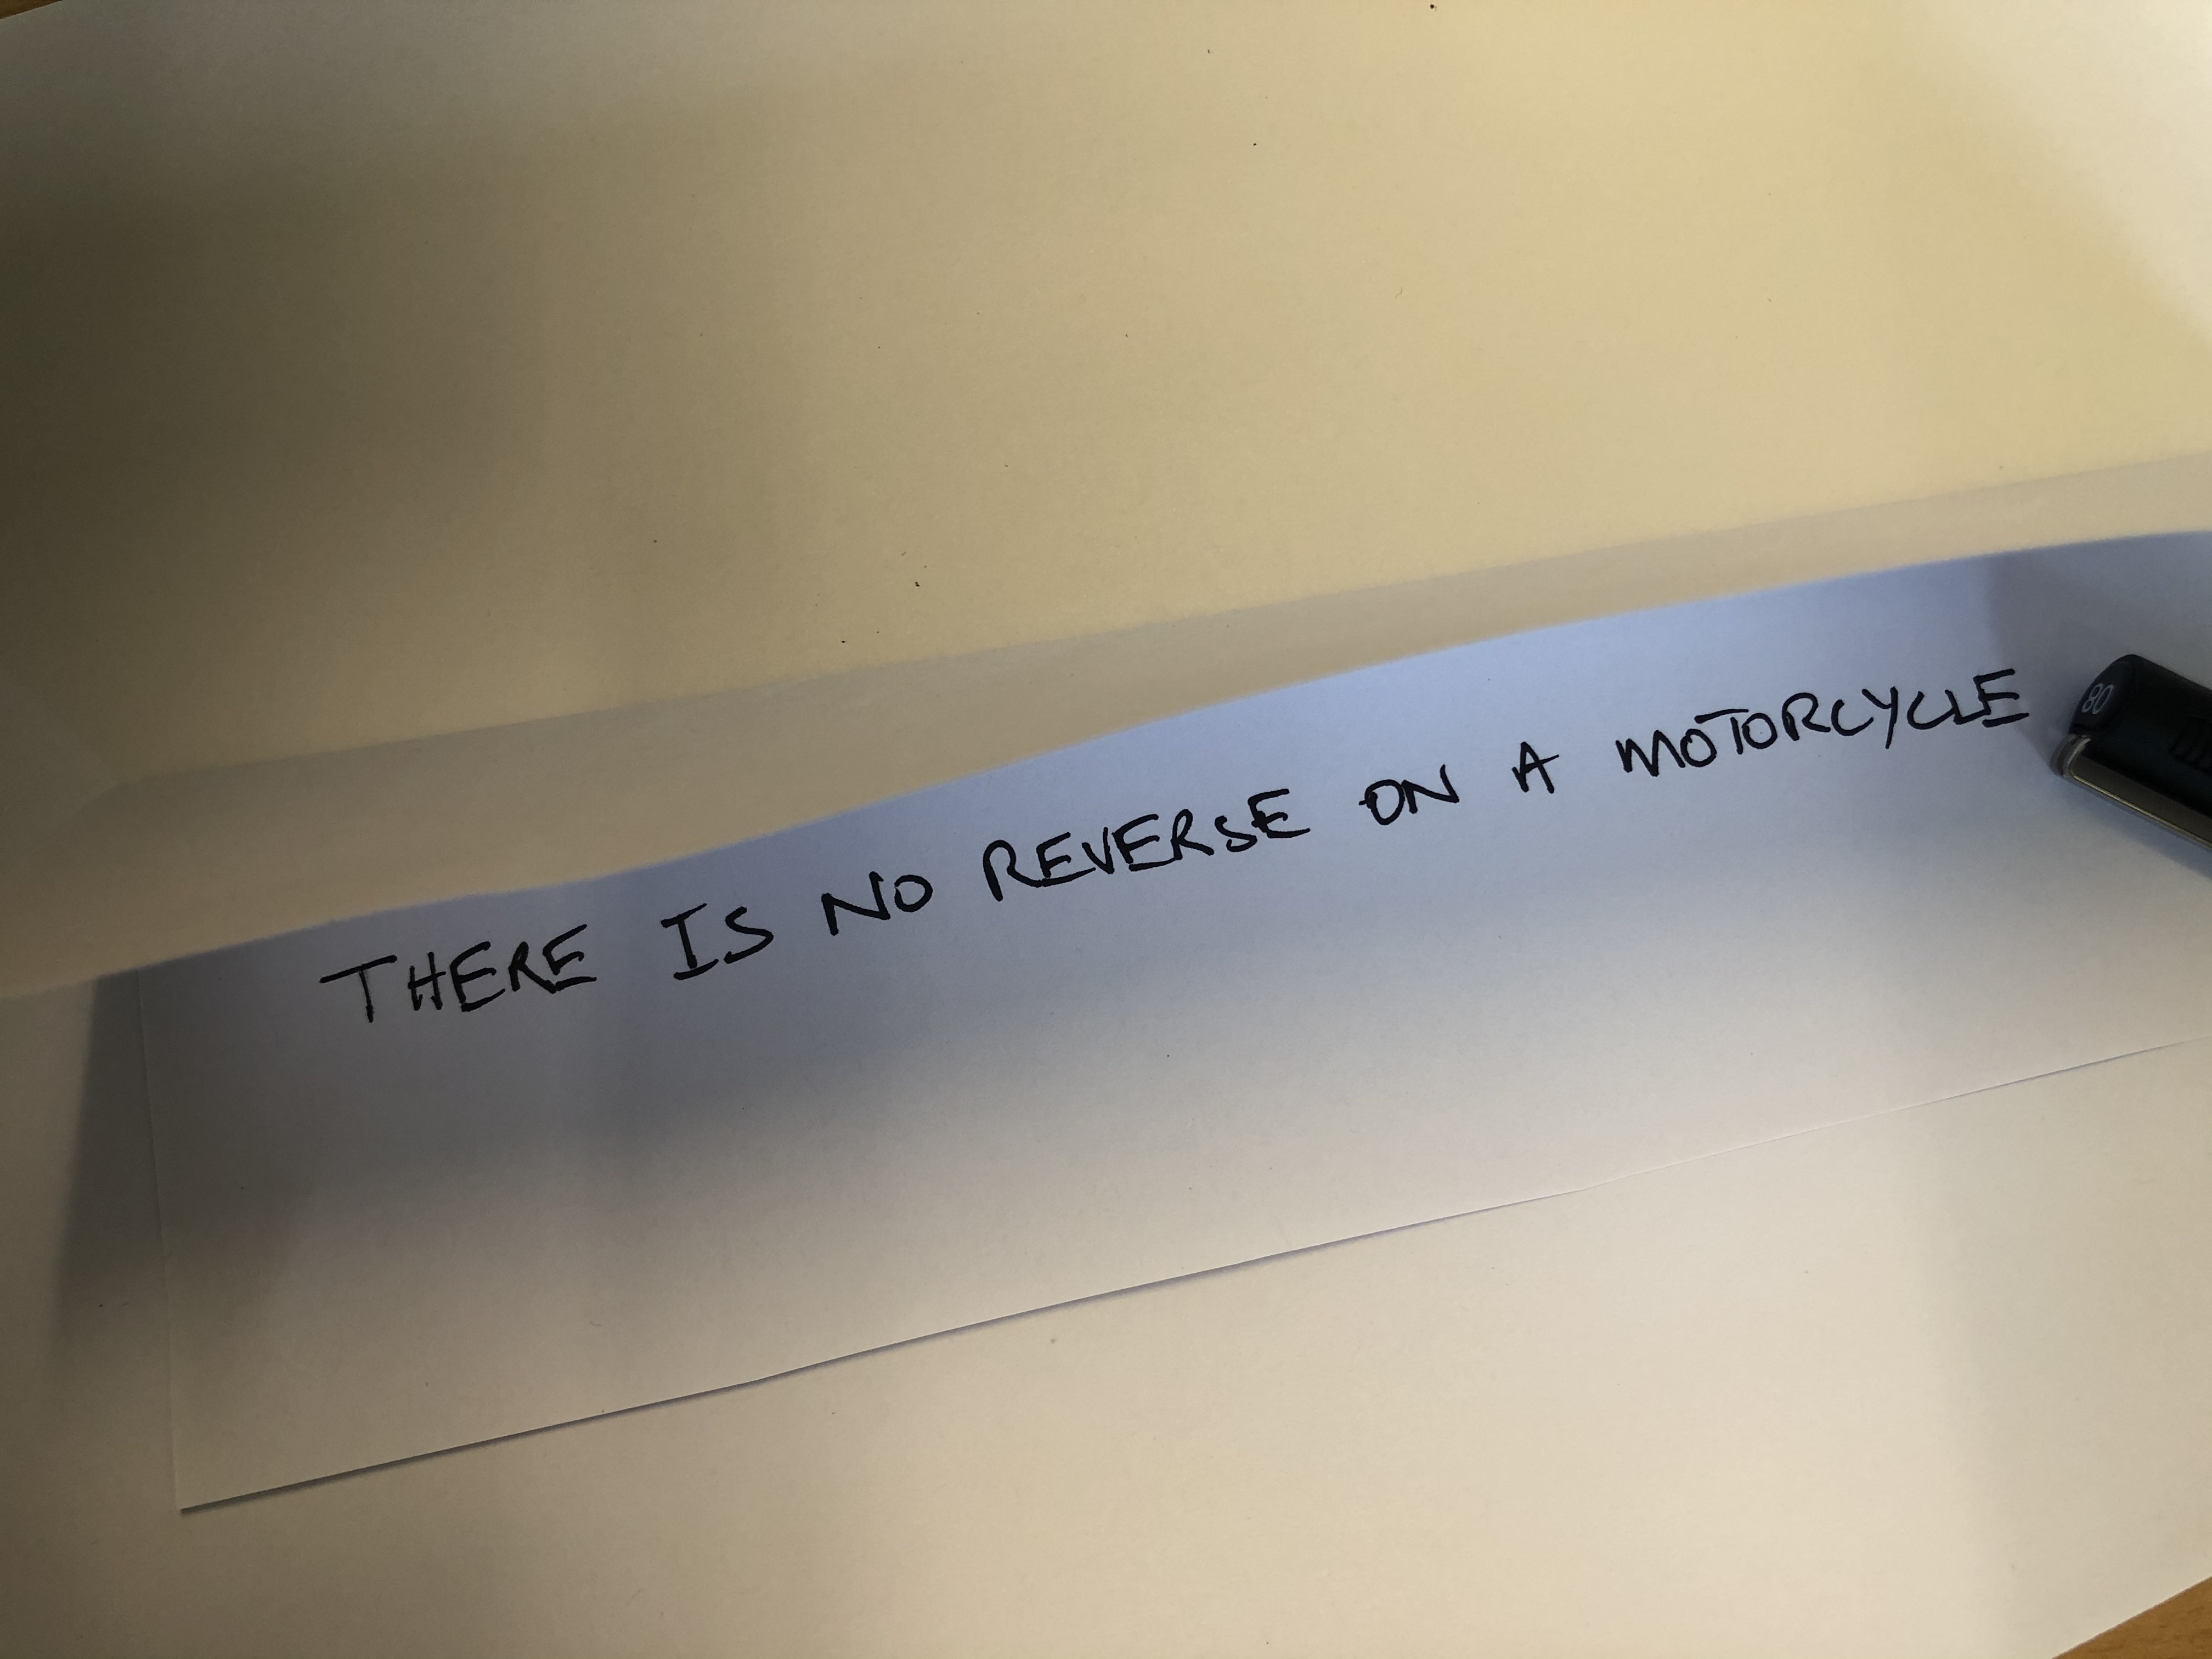 THERE IS NO REVERSE ON A MOTORCYCLE
80